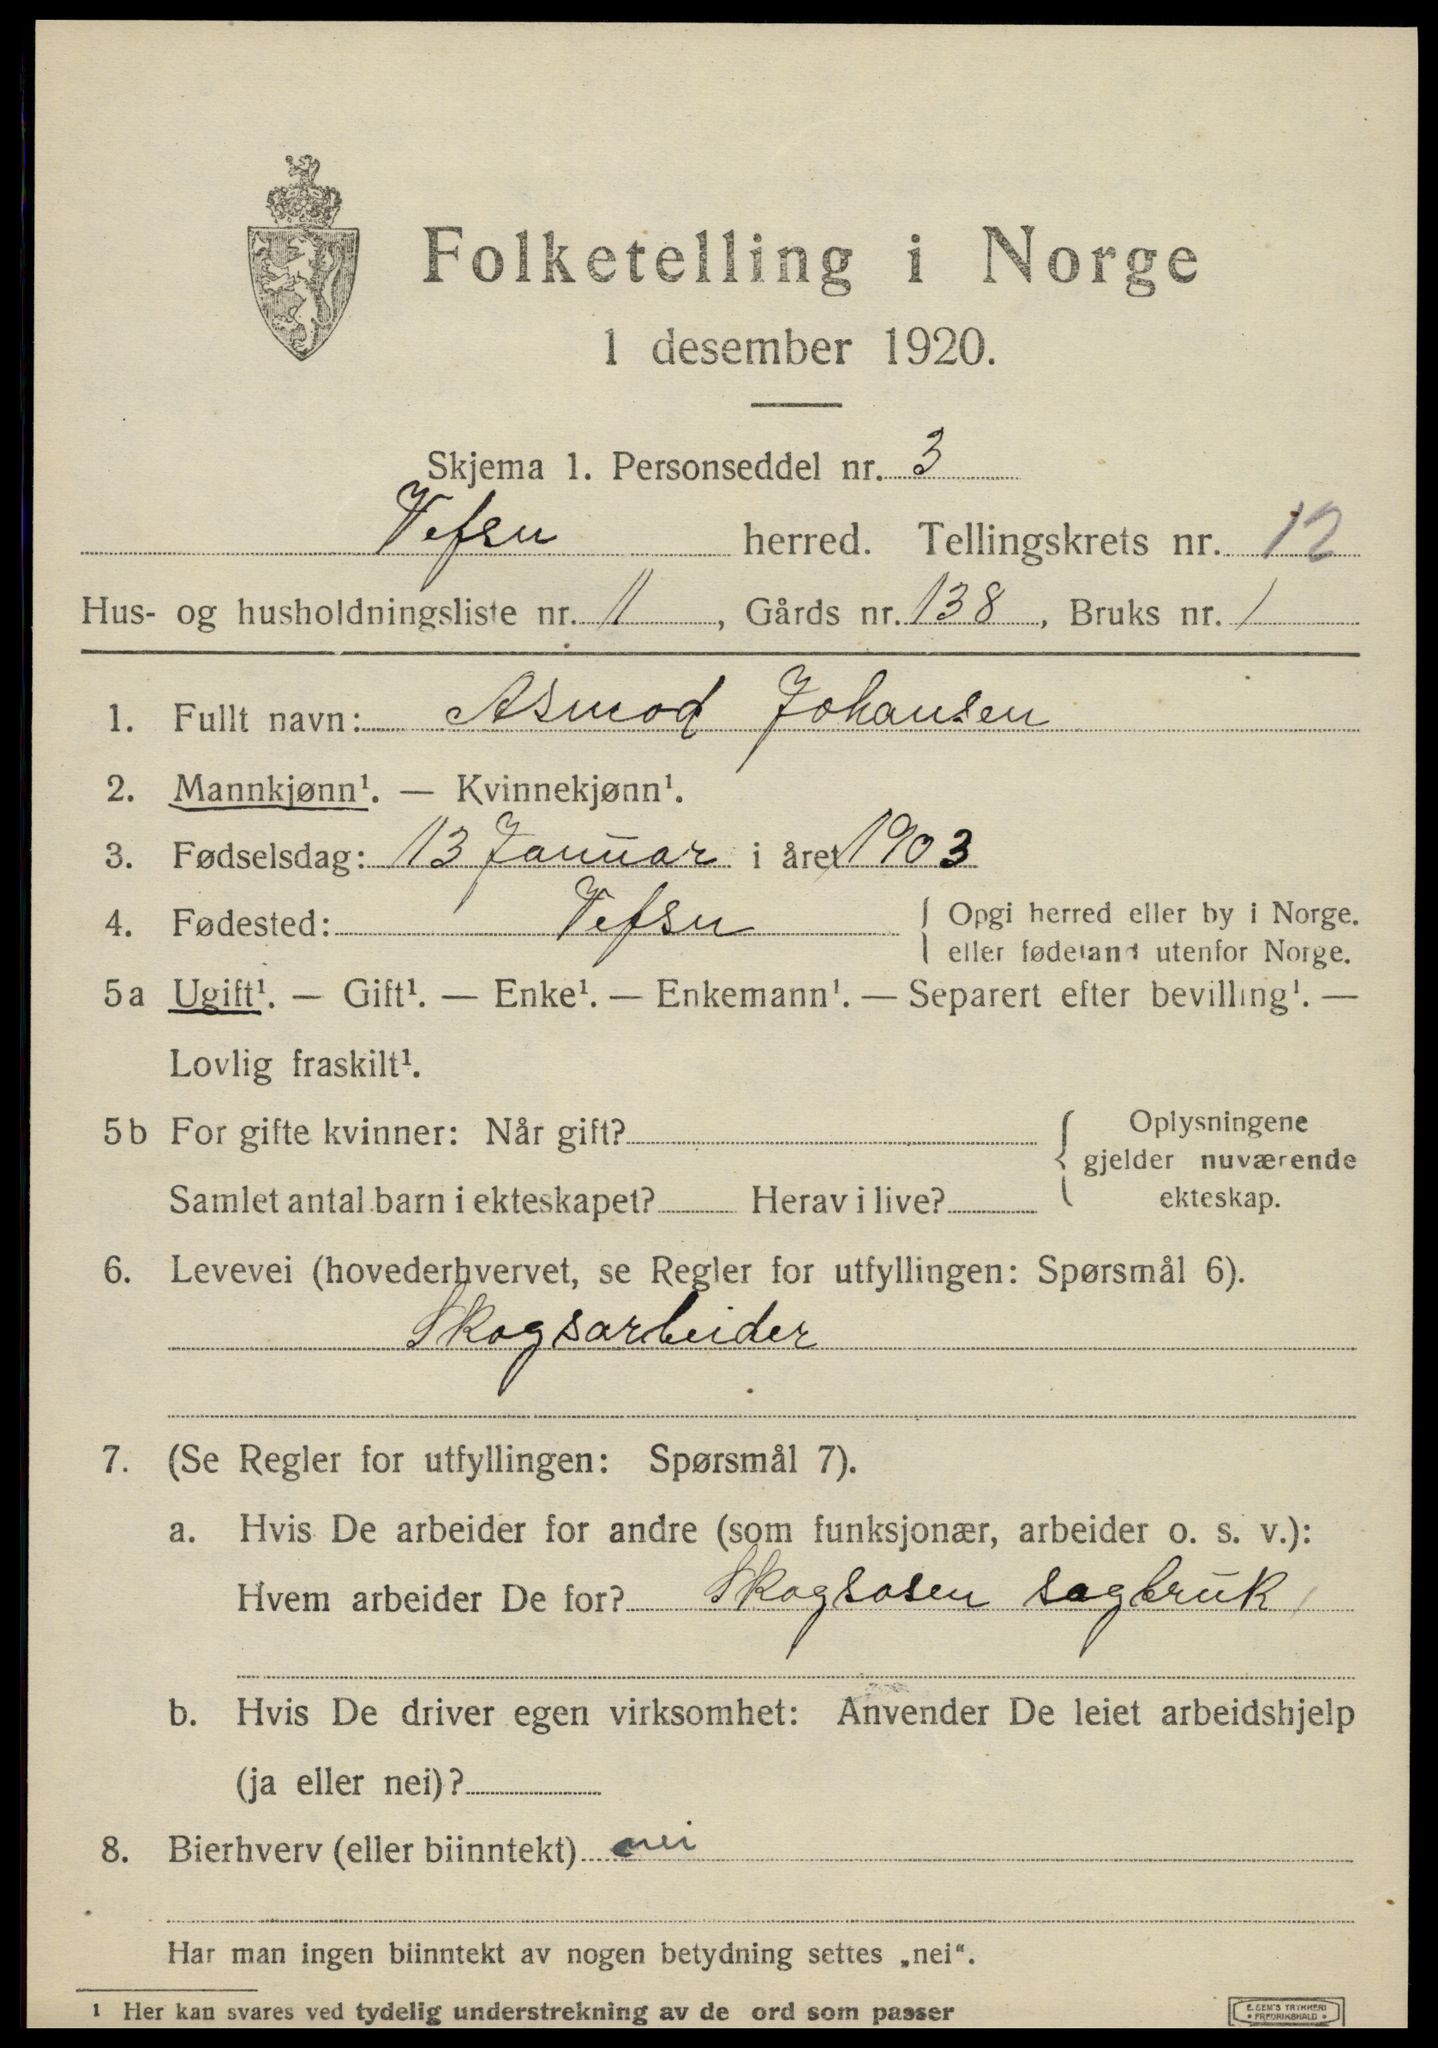 Folketelling i Norge
1 desember 1920.
Skjema 1. Personseddel nr. 3
Vefsn herred. Tellingskrets nr. 12
Hus- og husholdningsliste nr. 11, Gårds nr. 138, Bruks nr. 1
1. Fullt navn: Asmod Johansen
2. Mannkjønn¹. — Kvinnekjønn¹.
3. Fødselsdag: 13 Januar i året 1903
4. Fødested: Vefsn { Opgi herred eller by i Norge.
eller fødeland utenfor Norge.
5a Ugift¹. — Gift¹. — Enke¹. — Enkemann¹. — Separert efter bevilling¹. —
Lovlig fraskilt¹.
5b For gifte kvinner: Når gift? { Oplysningene
gjelder nuværende
Samlet antal barn i ekteskapet? Herav i live? ekteskap.
6. Levevei (hovederhvervet, se Regler for utfyllingen: Spørsmål 6).
Skogsarbeider
7. (Se Regler for utfyllingen: Spørsmål 7).
a. Hvis De arbeider for andre (som funksjonær, arbeider o. s. v.):
Hvem arbeider De for? Skogsosen sagbruk
b. Hvis De driver egen virksomhet: Anvender De leiet arbeidshjelp
(ja eller nei)?
8. Bierhverv (eller biinntekt) nei
Har man ingen biinntekt av nogen betydning settes „nei“.
1 Her kan svares ved tydelig understrekning av de ord som passer
E. SEM'S TRYKKERI
• FREDRIKSHALD •